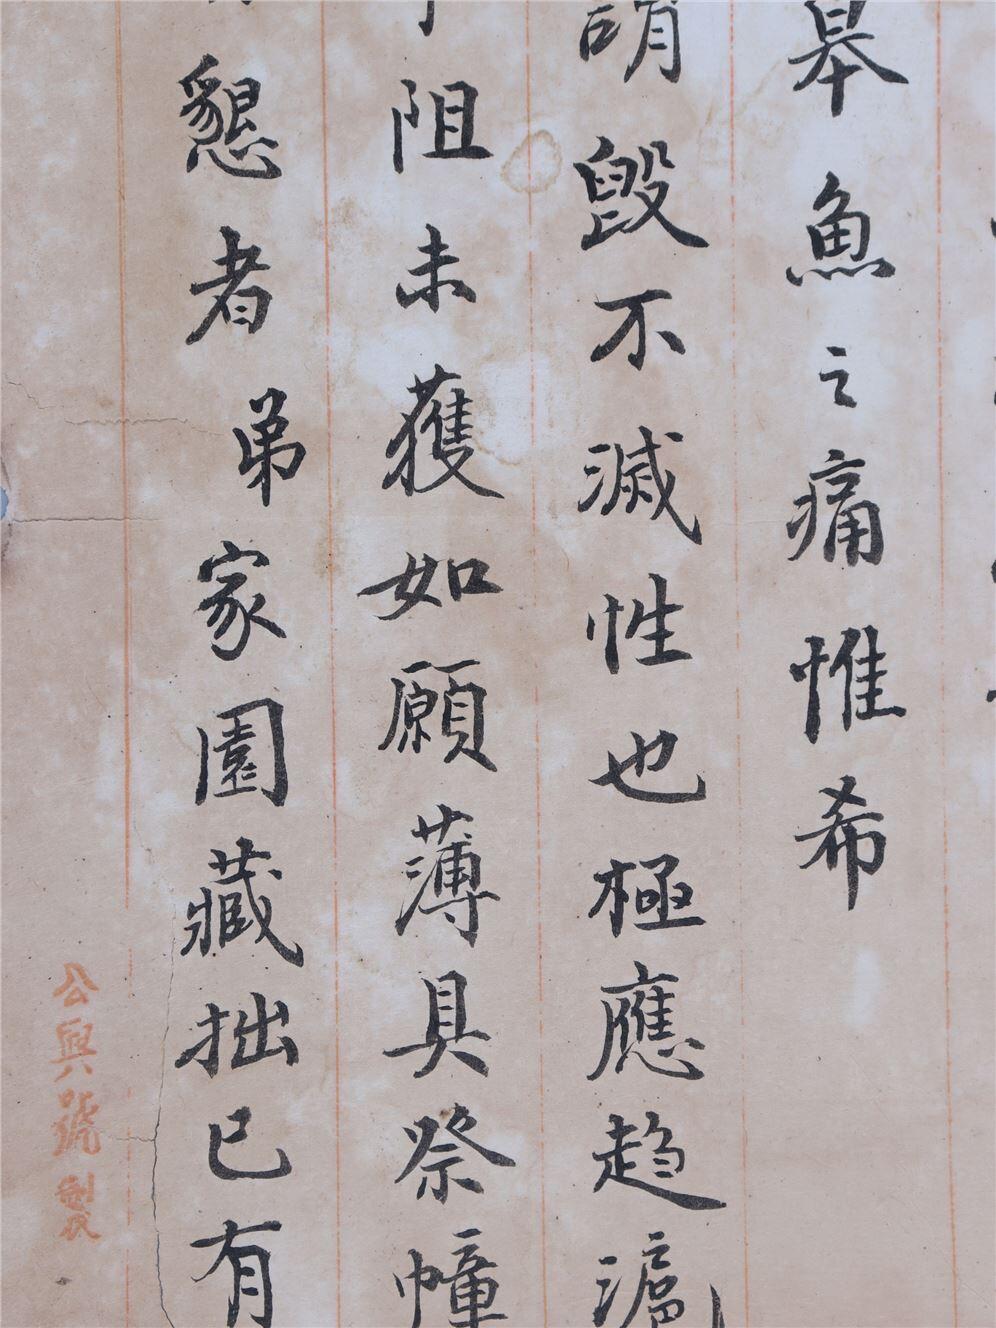 皋魚之痛惟希
毀不滅性也極應趋滬
阻未獲如願薄具祭幛
懇者弟家園藏拙已有
公興號製